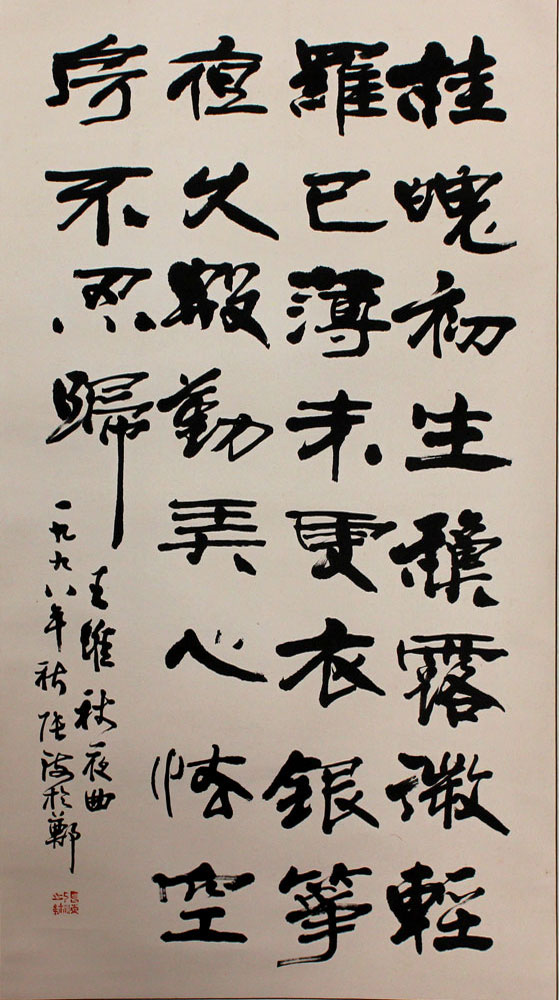 桂魄初生穐露微輕
羅已薄未更衣銀箏
夜久殷勤弄心怯空
房不忍歸
王維秋夜曲
一九九八年秋張海於鄭